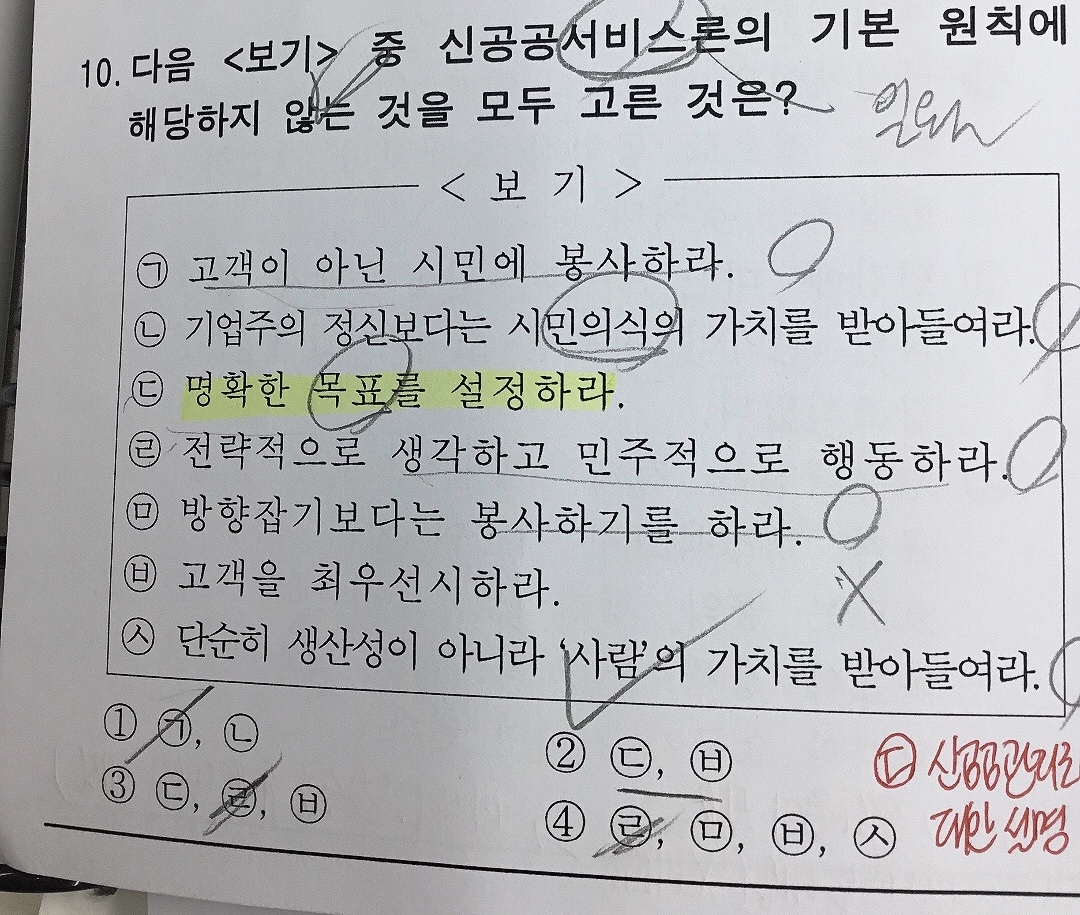 10. 다음 <보기> 중 신공공서비스론의 기본 원칙에
해당하지 않는 것을 모두 고른 것은?
< 보 기 >
㉠ 고객이 아닌 시민에 봉사하라.
㉡ 기업주의 정신보다는 시민의식의 가치를 받아들여라.
㉢ 명확한 목표를 설정하라.
㉣ 전략적으로 생각하고 민주적으로 행동하라.
㉤ 방향잡기보다는 봉사하기를 하라.
㉥ 고객을 최우선시하라.
㉦ 단순히 생산성이 아니라 '사람'의 가치를 받아들여라.
① ㉠, ㉡
② ㉢, ㉥
③ ㉢, ㉣, ㉥
④ ㉣, ㉤, ㉥, ㉦
㉢ 신공공관리론